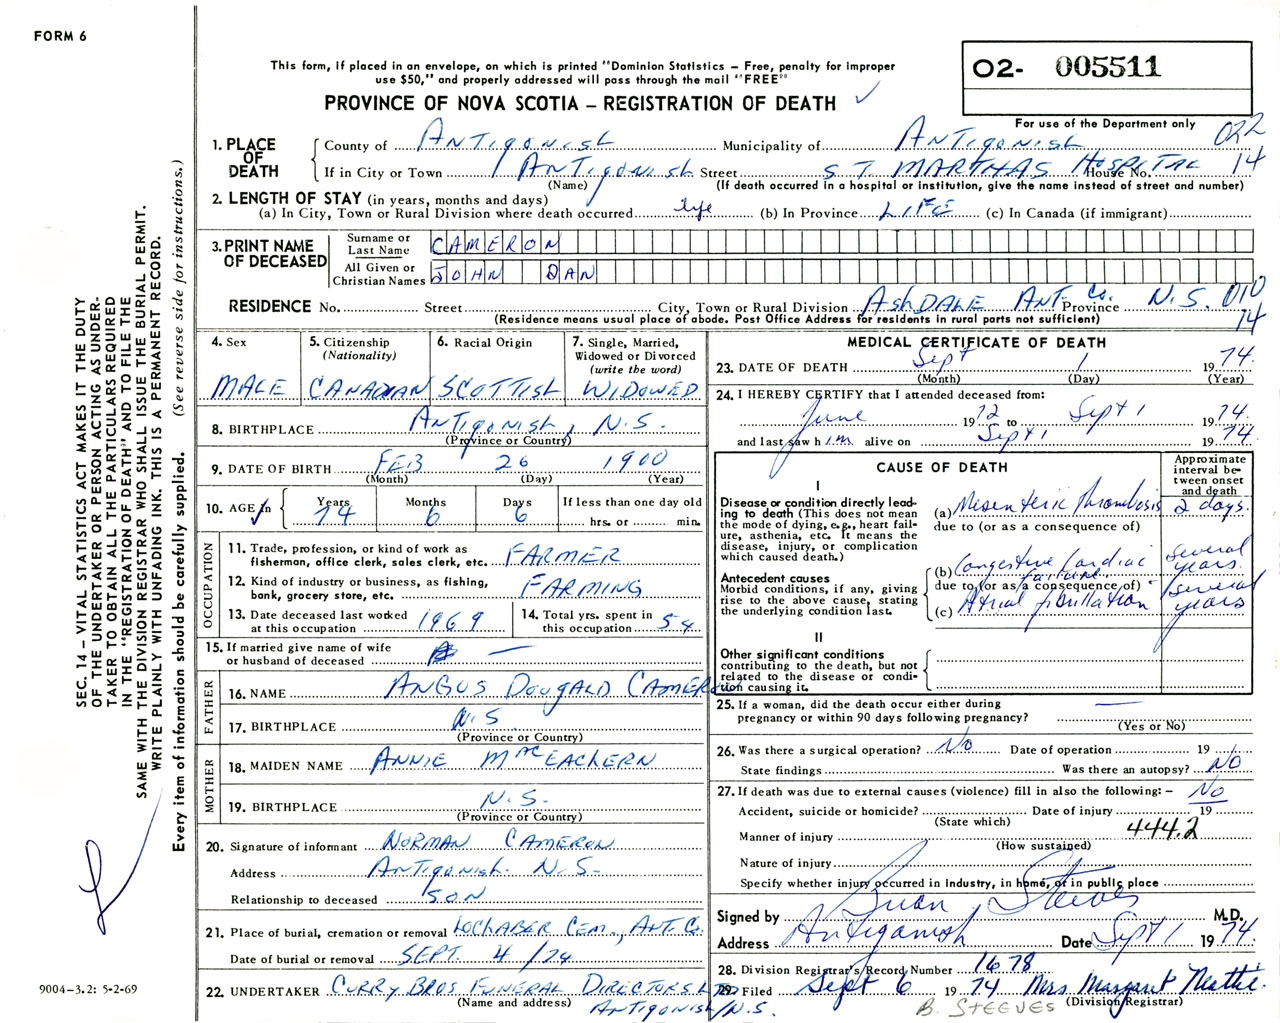 FORM 6
This form, if placed in an envelope, on which is printed "Dominion Statistics – Free, penalty for improper
use $50," and properly addressed will pass through the mail "FREE"
PROVINCE OF NOVA SCOTIA – REGISTRATION OF DEATH
02- 005511
For use of the Department only
022
14
1. PLACE OF DEATH
County of Antigonish Municipality of Antigonish
If in City or Town Antigonish Street ST. MARTHAS HOSPITAL House No.
(Name) (If death occurred in a hospital or institution, give the name instead of street and number)
2. LENGTH OF STAY (in years, months and days)
(a) In City, Town or Rural Division where death occurred life (b) In Province LIFE (c) In Canada (if immigrant)
3. PRINT NAME OF DECEASED
Surname or Last Name CAMERON
All Given or Christian Names JOHN DAN
RESIDENCE No. Street City, Town or Rural Division AshDALE ANT. Co. Province N.S. 010
14
(Residence means usual place of abode. Post Office Address for residents in rural parts not sufficient)
4. Sex MALE
5. Citizenship (Nationality) CANADIAN
6. Racial Origin SCOTTISH
7. Single, Married, Widowed or Divorced (write the word) WIDOWED
8. BIRTHPLACE Antigonish, N.S.
(Province or Country)
9. DATE OF BIRTH FEB 26 1900
(Month) (Day) (Year)
10. AGE in Years 74 Months 6 Days 6 If less than one day old hrs. or min.
OCCUPATION
11. Trade, profession, or kind of work as
fisherman, office clerk, sales clerk, etc. FARMER
12. Kind of industry or business, as fishing,
bank, grocery store, etc. FARMING
13. Date deceased last worked
at this occupation 1969
14. Total yrs. spent in
this occupation 54
15. If married give name of wife
or husband of deceased —
FATHER
16. NAME ANGUS DOUGALD CAMERON
17. BIRTHPLACE N.S
(Province or Country)
MOTHER
18. MAIDEN NAME ANNIE MacEACHERN
19. BIRTHPLACE N.S.
(Province or Country)
20. Signature of informant NORMAN CAMERON
Address Antigonish. N.S.
Relationship to deceased SON
21. Place of burial, cremation or removal LOCHABER CEM., ANT. Co.
Date of burial or removal SEPT. 4 /74
22. UNDERTAKER CURRY BROS FUNERAL DIRECTORS LTD
(Name and address) Antigonish/N.S.
MEDICAL CERTIFICATE OF DEATH
23. DATE OF DEATH Sept 1 1974.
(Month) (Day) (Year)
24. I HEREBY CERTIFY that I attended deceased from:
June 1972 to Sept 1 1974.
and last saw him alive on Sept 1 1974.
CAUSE OF DEATH
Approximate interval between onset and death
I
Disease or condition directly leading to death (This does not mean the mode of dying, e.g., heart failure, asthenia, etc. It means the disease, injury, or complication which caused death.)
(a) Mesenteric thrombosis 2 days.
due to (or as a consequence of)
Antecedent causes
Morbid conditions, if any, giving rise to the above cause, stating the underlying condition last.
(b) Congestive Cardiac failure several years.
due to (or as a consequence of)
(c) Atrial fibrillation several years
II
Other significant conditions
contributing to the death, but not related to the disease or condition causing it.
25. If a woman, did the death occur either during
pregnancy or within 90 days following pregnancy? —
(Yes or No)
26. Was there a surgical operation? No Date of operation 19
State findings Was there an autopsy? No
27. If death was due to external causes (violence) fill in also the following: – No
Accident, suicide or homicide? Date of injury 19
(State which)
Manner of injury 444.2
(How sustained)
Nature of injury
Specify whether injury occurred in Industry, in home, or in public place
Signed by Brian Steeves M.D.
Address Antigonish Date Sept 1 1974.
28. Division Registrar's Record Number 1678
29. Filed Sept 6 1974 Mrs Margaret
(Division Registrar)
B. STEEVES
SEC. 14 – VITAL STATISTICS ACT MAKES IT THE DUTY
OF THE UNDERTAKER OR PERSON ACTING AS UNDER-
TAKER TO OBTAIN ALL THE PARTICULARS REQUIRED
IN THE "REGISTRATION OF DEATH" AND TO FILE THE
SAME WITH THE DIVISION REGISTRAR WHO SHALL ISSUE THE BURIAL PERMIT.
WRITE PLAINLY WITH UNFADING INK. THIS IS A PERMANENT RECORD.
Every item of information should be carefully supplied. (See reverse side for instructions.)
9004-3.2: 5-2-69